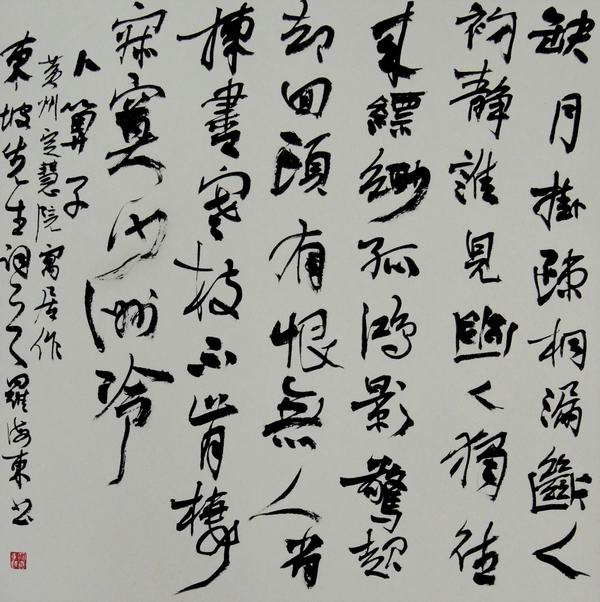 缺月掛疎桐漏斷人
初靜誰見幽人獨往
來縹緲孤鴻影驚起
却回頭有恨無人省
揀盡寒枝不肯棲
寂寞沙洲冷
卜算子
黃州定慧院寓居作
東坡先生詞 羅海東书